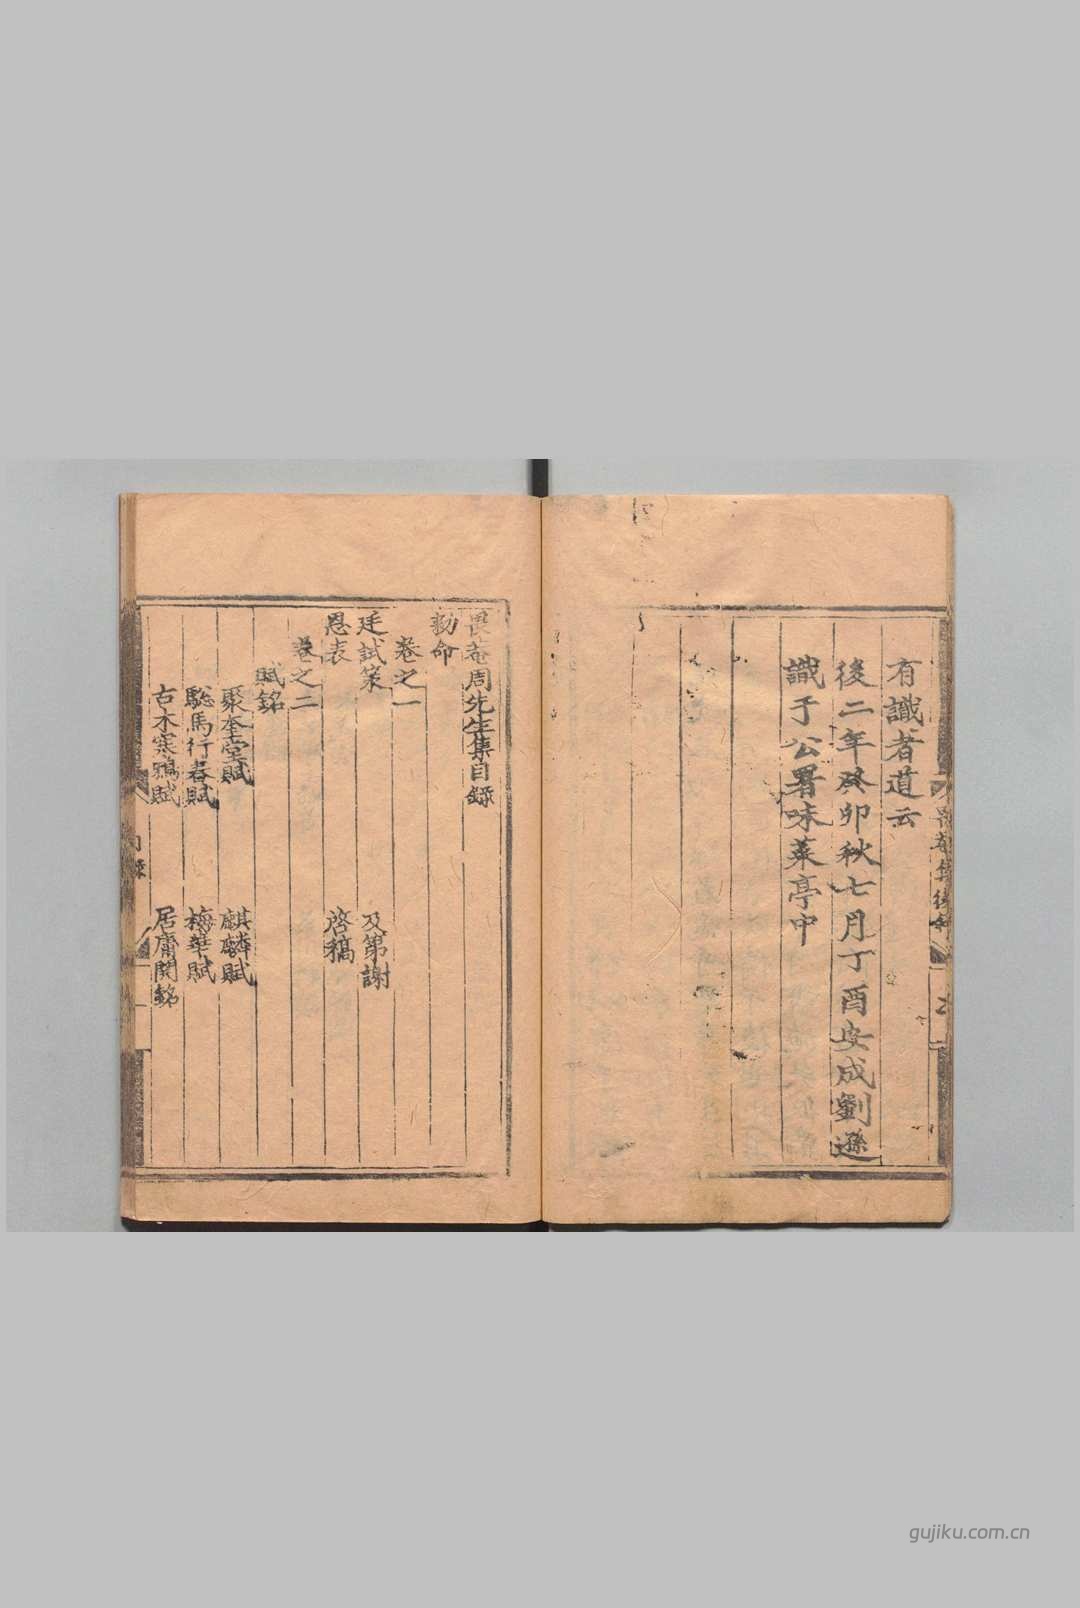 有識者道云
後二年癸卯秋七月丁酉安成劉遜
識于公署味菜亭中
畏菴周先生集目錄
勑命
卷之一
廷試策
及第謝
恩表
啓稿
卷之二
賦銘
聚奎堂賦
麒麟賦
驄馬行春賦
梅華賦
古木寒鴉賦
居庸関銘
目錄
一
gujiku.com.cn